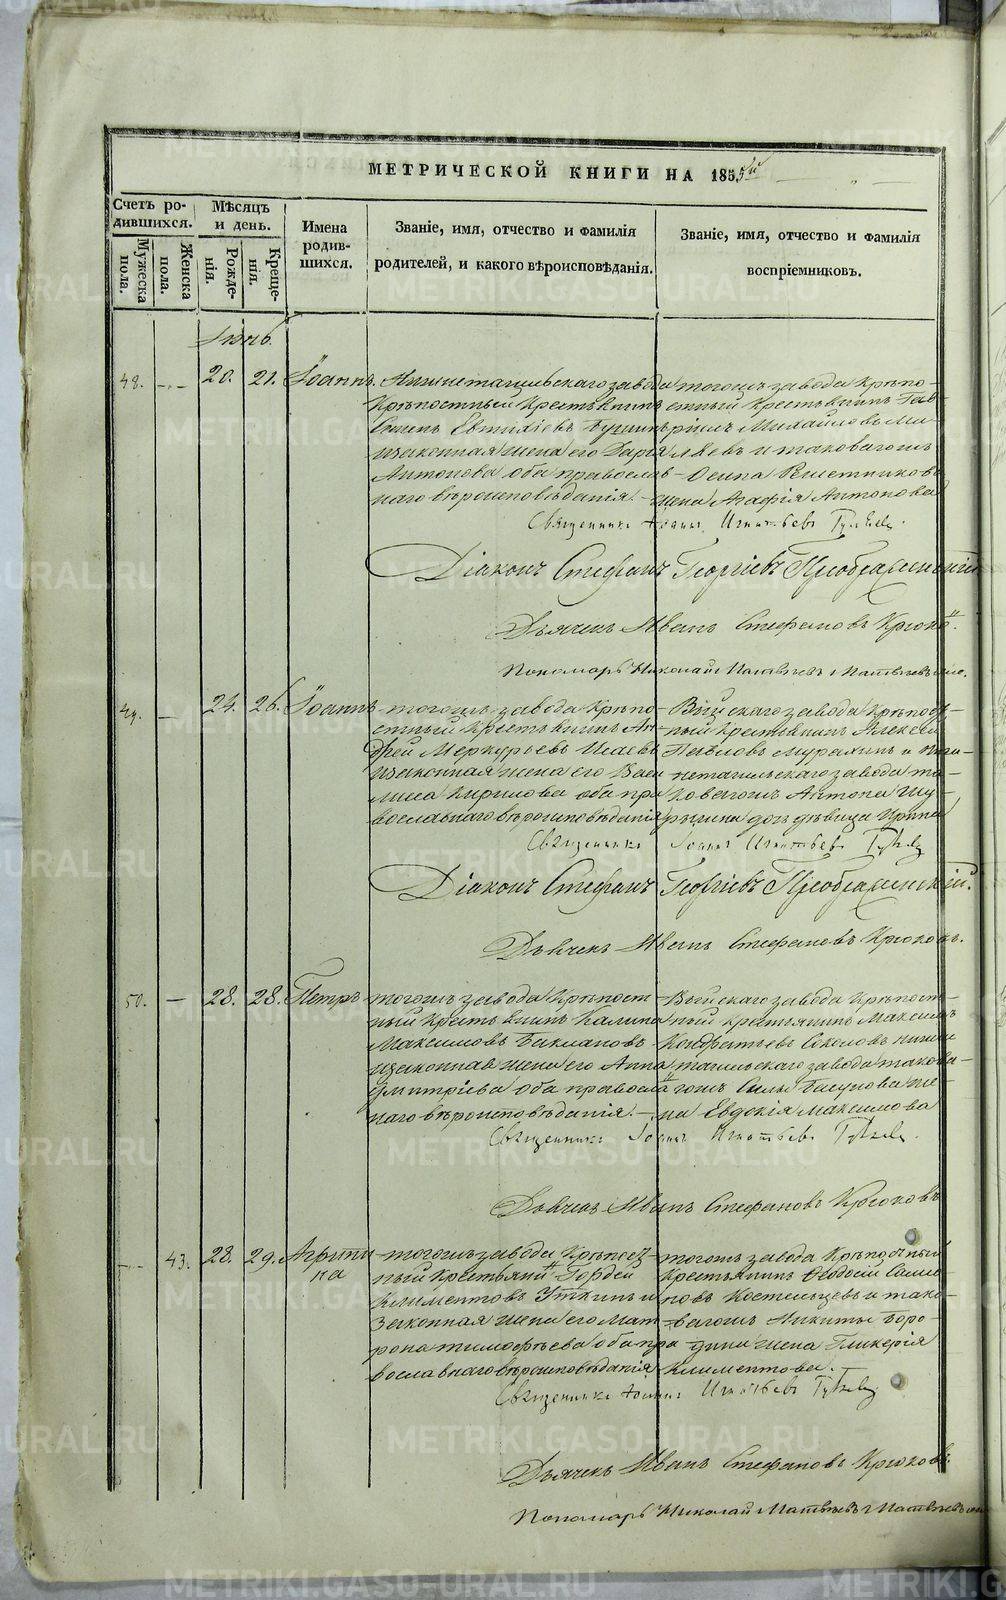 МЕТРИЧЕСКОЙ КНИГИ НА 1855й
Счетъ ро-
дившихся.
Мужеска
пола.
Женска
пола.
Мѣсяцъ
и день.
Рожде-
нія.
Креще-
нія.
Имена
родив-
шихся.
Званіе, имя, отчество и фамилія
родителей, и какого вѣроисповѣданія.
Званіе, имя, отчество и фамилія
воспріемниковъ.
48. 20. 21. Іоаннъ
Нижнетагильскаго завода
Крѣпостный Крестьянинъ
Евтихіевъ
изаконная жена его Дарія
Антонова оба православ-
наго вѣроисповѣданія.
тогожъ завода Крѣпо-
стный крестьянинъ Гав-
рилъ Михайловъ Ми-
и таковагожъ
Осипа Решетникова
жена Агафія Антонова
Священникъ Іоаннъ Игнатьевъ
Діаконъ Стефанъ Георгіевъ Преображенскій
Дьячекъ Иванъ Стефановъ Крюковъ.
Пономарь Николай Матвѣевъ
49. 24. 26. Іоаннъ
тогожъ завода Крѣпо-
стный Крестьянинъ Ан-
дрей Меркурьевъ Исаевъ
изаконная жена его Васи
лиса Кирилова оба пра
вославнаго вѣроисповѣданія
Выйскаго завода Крѣпост-
ный Крестьянинъ Алексѣй
Павловъ и Ниж
нетагильскаго завода та-
ковагожъ Антона
дочь дѣвица Ирина
Священникъ Іоаннъ Игнатьевъ
Діаконъ Стефанъ Георгіевъ Преображенскій.
Дьячекъ Иванъ Стефановъ Крюковъ.
50. 28. 28. Петръ
тогожъ завода Крѣпост-
ный Крестьянинъ Калина
Максимовъ Баклановъ
изаконная жена его Анна
Дмитріева оба правосла
наго вѣроисповѣданія.
Выйскаго завода Крѣпост-
ный крестьянинъ Максимъ
Кондратьевъ Соколовъ нижне
тагильскаго завода такова-
гожъ Силы же-
на Евдокія Максимова
Священникъ Іоаннъ Игнатьевъ
Дьячекъ Иванъ Стефановъ Крюковъ
43. 28. 29. Агрипи
на
тогожъ завода Крѣпост-
ный Крестьянинъ Гордей
Климентовъ Уткинъ и
законная жена его Мат-
рона Тимофѣева оба пра
вославнаго вѣроисповѣданія
тогожъ завода Крѣпостный
крестьянинъ Ѳеодосій Семе-
новъ и тако-
вагожъ Никиты Боро-
дина жена Гликерія
Климентова.
Священникъ Іоаннъ Игнатьевъ
Дьячекъ Иванъ Стефановъ Крюковъ.
Пономарь Николай Матвѣевъ
METRIKI.GASO-URAL.RU